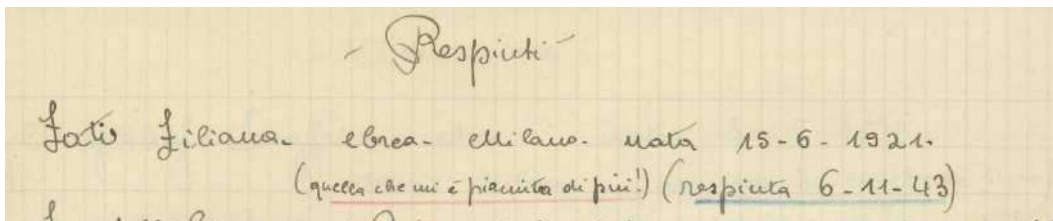 - Respinti -
Latis Liliana. ebrea - Milano. nata 15-6-1921.
(quella che mi è piaciuta di più!) (respinta 6-11-43)